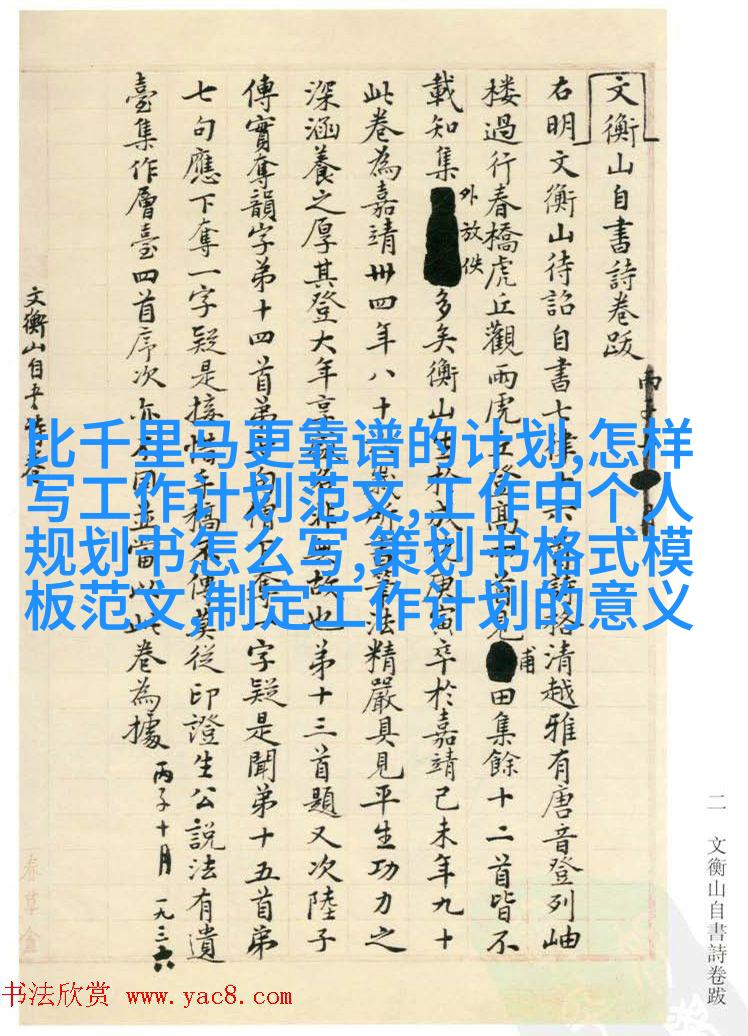 文衡山自書詩卷跋
右明文衡山待詔自書七律
楼過行春橋虎丘觀雨虎丘登高
田集餘十二首皆不
載知集外放佚多矣衡山生於成化庚寅卒於嘉靖己未年九十
此卷為嘉靖卅四年八十
精嚴具見平生功力之
深涵養之厚其登大年享
非無故也第十三首題又次陸子
傳實奪韻字第十四首第
字疑是聞第十五首第
七句應下奪一字疑是接
手稿
傳莫從印證生公說法有遺
臺集作層臺四首序次亦
當以此卷為據
丙子十月 一九三六
文衡山自書
比千里马更靠谱的计划,怎样
写工作计划范文,工作中个人
规划书怎么写,策划书格式模
板范文,制定工作计划的意义
二 文衡山自書詩卷跋
书法欣赏 www.yac8.com